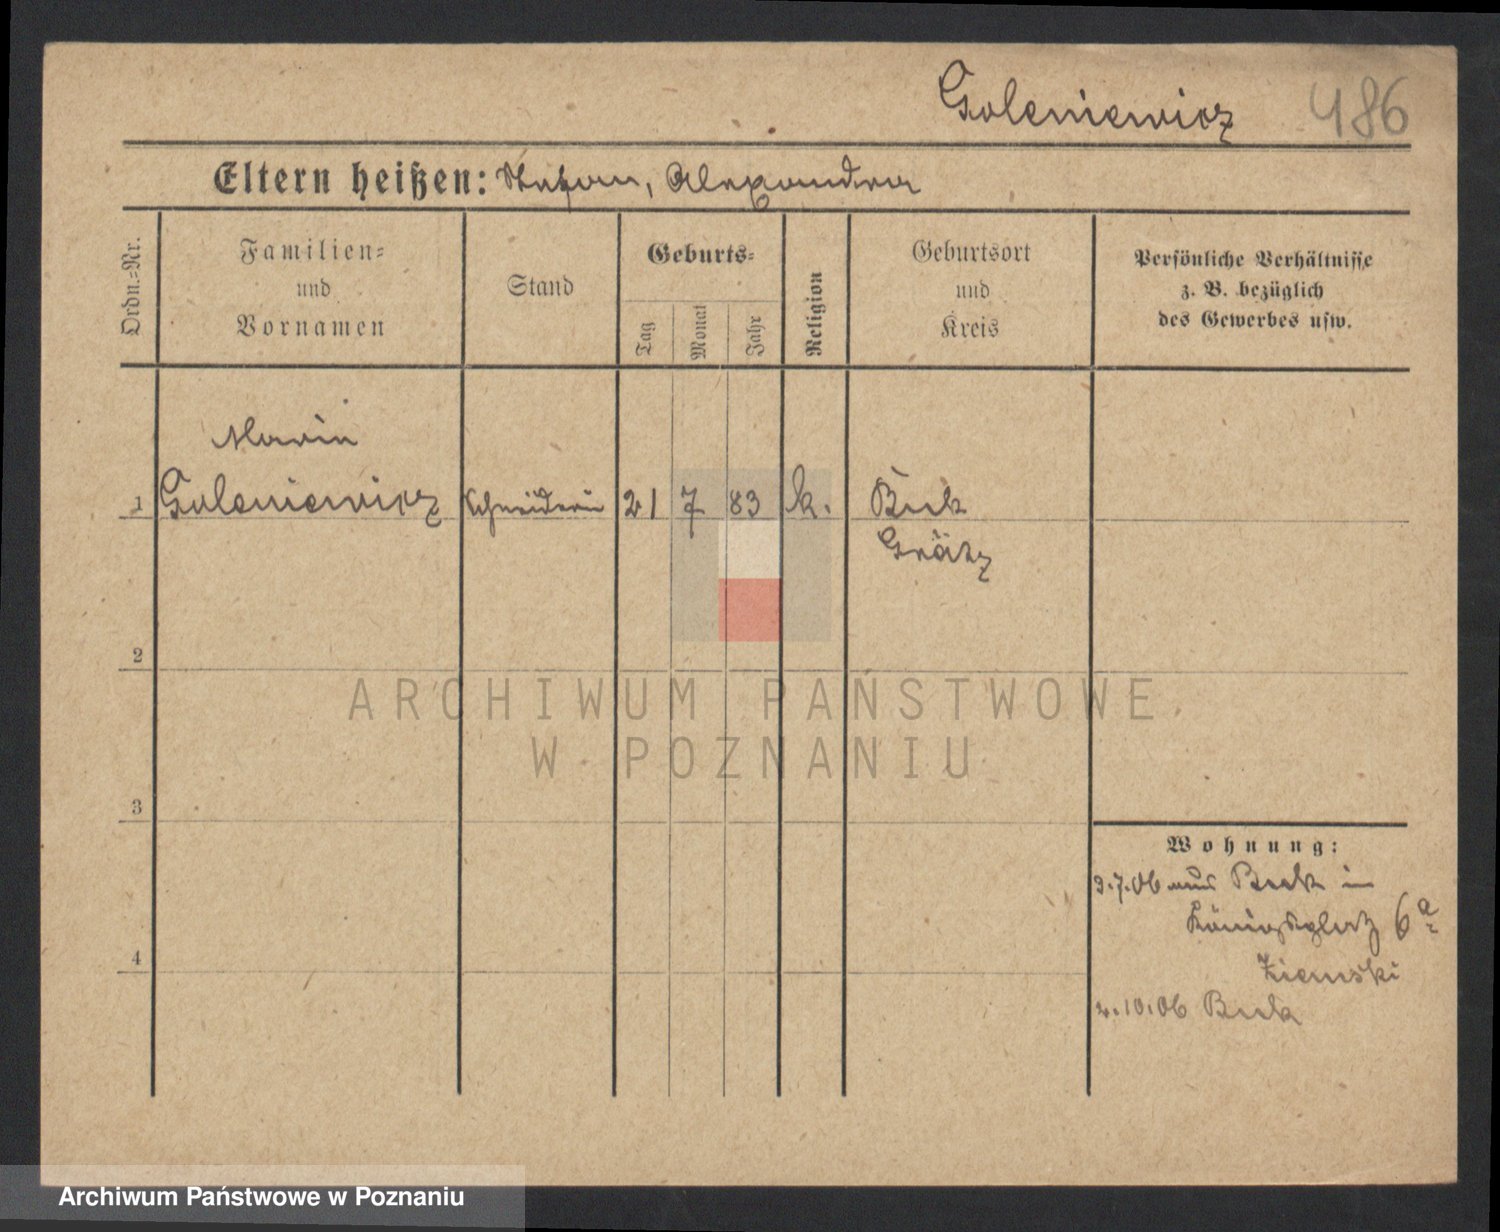 Goleniewicz 486
Eltern heißen: Stefan, Alexandra
Ordn.-Nr.
Familien-
und
Vornamen
Stand
Geburts-
Tag
Monat
Jahr
Religion
Geburtsort
und
Kreis
Persönliche Verhältnisse
z. B. bezüglich
des Gewerbes usw.
Marie
1 Goleniewicz Schneiderin 21 7 83 k. Buk
Grätz
2
ARCHIWUM PAŃSTWOWE
W POZNANIU
3
Wohnung:
3.7.06 aus Buk in
Königsplatz 6a
Ziemski
4
2.10.06 Buk
Archiwum Państwowe w Poznaniu